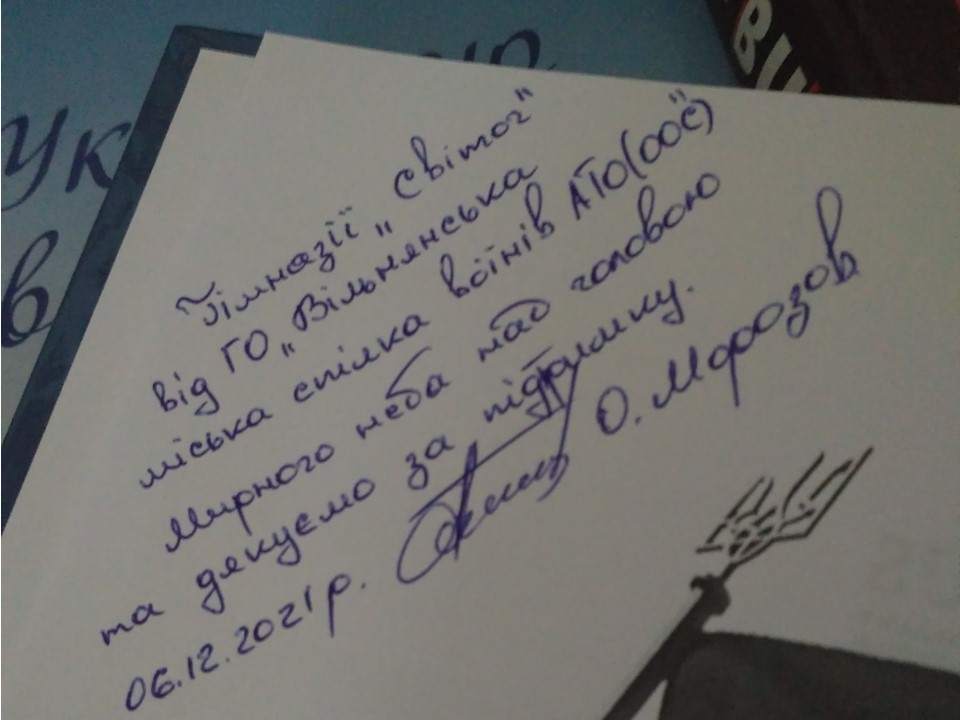 Гімназії „Світоч"
від ГО „Вільнянська
міська спілка воїнів АТО(ООС)"
Мирного неба над головою
та дякуємо за підтримку.
06.12.2021р.
О. Морозов
Ук
в